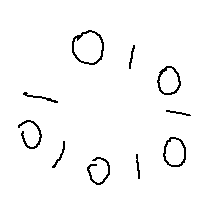 0 1 0 1 0 1 0 1 0 1